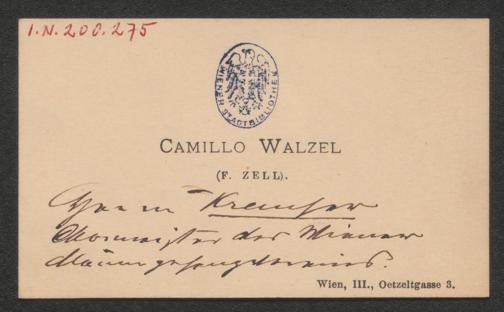 I.N. 200.275
WIENER STADTBIBLIOTHEK
CAMILLO WALZEL
(F. ZELL).
Herrn Kremser
Chormeister des Wiener
Männergesangvereins.
Wien, III., Oetzeltgasse 3.